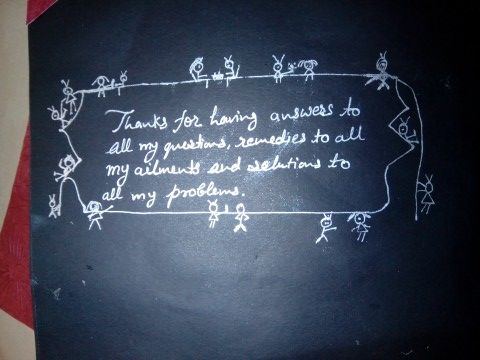 Thanks for having answers to
all my questions, remedies to all
my ailments and solutions to
all my problems.